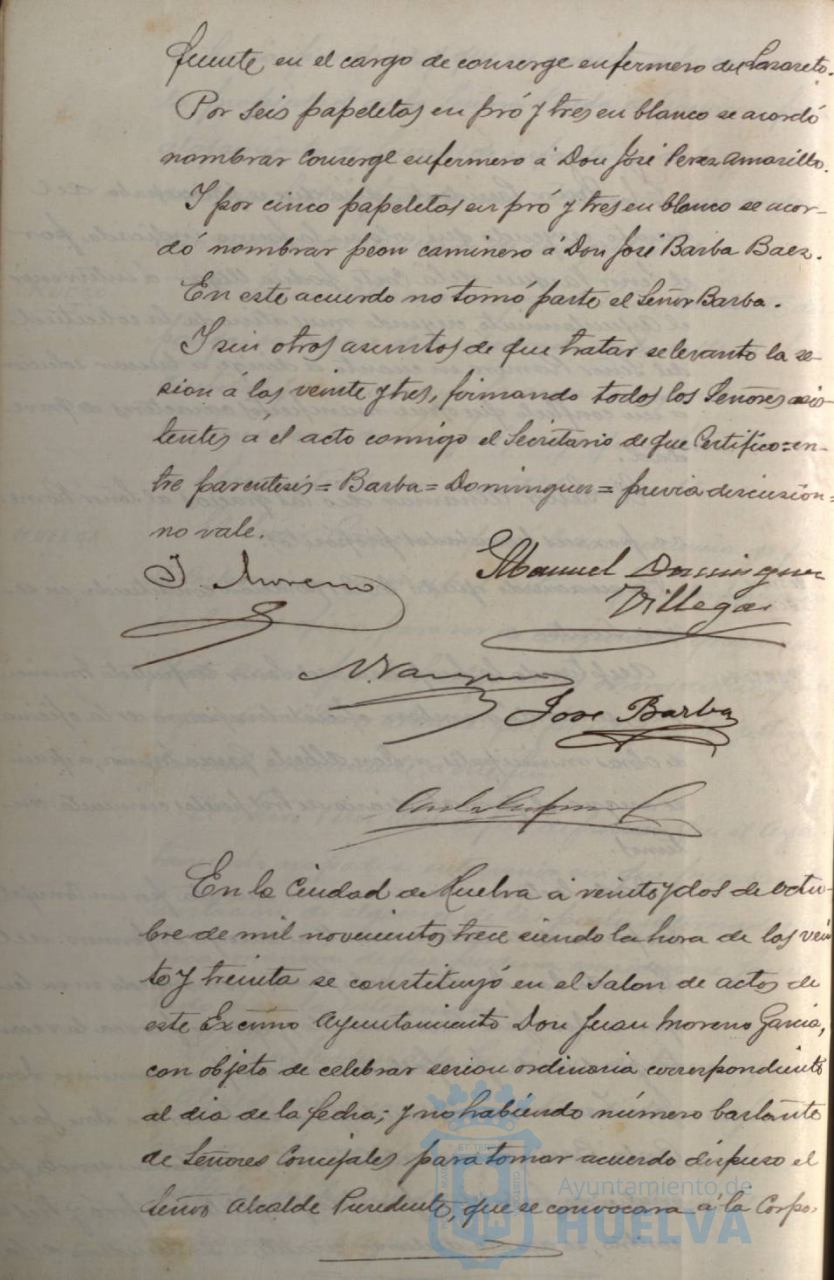 fuente, en el cargo de conserge enfermero del Lazareto.
Por seis papeletas en pró y tres en blanco se acordó
nombrar Conserge enfermero á Don José Perez Amarillo.
I por cinco papeletas en pró y tres en blanco se acor-
dó nombrar peon caminero á Don José Barba Baez.
En este acuerdo no tomó parte el Señor Barba.
I sin otros asuntos de que tratar se levanto la se-
sion á las veinte y tres, firmando todos los Señores asis-
tentes á el acto comigo el Secretario de que Certifico=en-
tre parentesis=Barba=Dominguez=previa discusion=
no vale.
J. Moreno
Manuel Dominguez
Villegas
José Barba
En la Ciudad de Huelva á veinte y dos de octu-
bre de mil novecientos trece siendo la hora de las vein
te y treinta se constituyó en el Salon de actos de
este Excmo Ayuntamiento Don Juan Moreno Garcia,
con objeto de celebrar sesion ordinaria correspondiente
al dia de la fecha; y no habiendo número bastante
de Señores Concejales para tomar acuerdo dispuso el
Señor Alcalde Presidente, que se convocara á la Corpo-
Ayuntamiento de
HUELVA